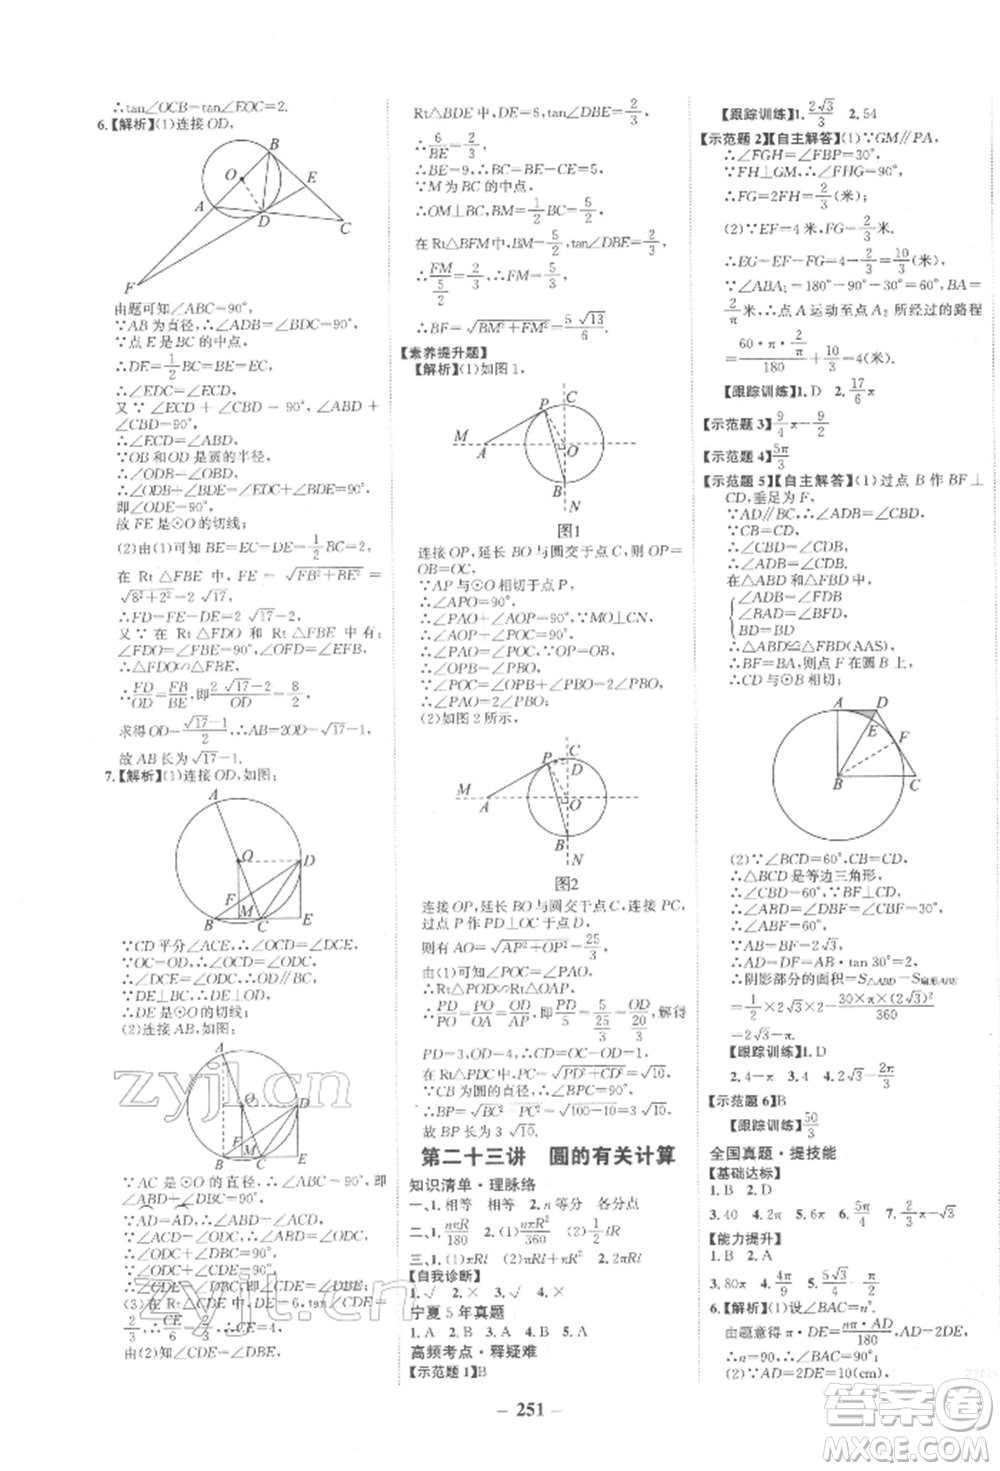 ∴tan∠OCB=tan∠EOC=2.
6.【解析】(1)连接OD,
B
O
E
A
D
C
F
由题可知∠ABC=90°,
∵AB为直径,∴∠ADB=90°,
∵点E是BC的中点,
∴DE=1/2BC=BE=EC,
∴∠EDC=∠ECD,
又∵∠ECD+∠CBD=90°,∠ABD+∠CBD=90°,
∴∠ECD=∠ABD,
∵OB和OD是圆的半径,
∴∠ODB=∠OBD,
∴∠ODB+∠BDE=90°,
即∠ODE=90°,
故FE是⊙O的切线;
(2)由(1)可知BE=EC=DE=1/2BC=2,
在Rt△FBE中,FE=√(FB²+BE²)=
√(8²+2²)=2√17,
∴FD=FE-DE=2√17-2,
又∵在Rt△FDO和Rt△FBE中有:
∠FDO=∠FBE=90°,∠OFD=∠EFB,
∴△FDO∽△FBE,
∴FD/OD=FB/BE,即(2√17-2)/OD=8/2,
求得OD=(√17-1)/2,∴AB=2OD=√17-1,
故AB长为√17-1.
7.【解析】(1)连接OD,如图:
A
O
D
F
B
M
C
E
∵CD平分∠ACE,∴∠OCD=∠DCE,
∵OC=OD,∴∠OCD=∠ODC,
∴∠DCE=∠ODC,∴OD∥BC,
∵DE⊥BC,∴DE⊥OD,
∴DE是⊙O的切线;
(2)连接AB,如图:
A
O
D
F
B
M
C
E
∵AC是⊙O的直径,∴∠ABC=90°,即
∠ABD+∠DBC=90°,
∵AD=AD,∴∠ABD=∠ACD,
∵∠ACD=∠ODC,∴∠ABD=∠ODC,
∴∠ODC+∠DBC=90°,
∵∠ODC+∠CDE=90°,
∴∠CDE=∠DBC,即∠CDE=∠DBE;
(3)在Rt△CDE中,DE=6,tan∠CDE=
2/3,∴CE/6=2/3,∴CE=4,
由(2)知∠CDE=∠DBE,
Rt△BDE中,DE=6,tan∠DBE=2/3,
∴6/BE=2/3,
∴BE=9,∴BC=BE-CE=5,
∵M为BC的中点,
∴OM⊥BC,BM=1/2BC=5/2,
在Rt△BFM中,BM=5/2,tan∠DBE=2/3,
∴FM/(5/2)=2/3,∴FM=5/3,
∴BF=√(BM²+FM²)=5√13/6.
【素养提升题】
【解析】(1)如图1,
P
C
M
A
O
B
N
图1
连接OP,延长BO与圆交于点C,则OP=
OB=OC,
∵AP与⊙O相切于点P,
∴∠APO=90°,
∴∠PAO+∠AOP=90°,∵MO⊥CN,
∴∠AOP+∠POC=90°,
∴∠PAO=∠POC,∵OP=OB,
∴∠OPB=∠PBO,
∴∠POC=2∠PBO,
∴∠PAO=2∠PBO;
(2)如图2所示,
P
C
D
M
A
O
B
N
图2
连接OP,延长BO与圆交于点C,连接PC,
过点P作PD⊥OC于点D,
则有AO=√(AP²+OP²)=25/3,
由(1)可知∠POC=∠PAO,
∴Rt△PDO∽Rt△OAP,
∴PD/PO=OD/PA=PO/OA,即PD/5=5/(25/3)=OD/(20/3),解得
PD=3,OD=4,
∴CD=1,在Rt△PDC中,
∴PC=√(PD²+CD²)=√10,
∵CB为圆的直径,∴∠BPC=90°,
∴BP=√(BC²-PC²)=√(100-10)=3√10,
故BP长为3√10.
第二十三讲 圆的有关计算
知识清单·理脉络
一、1.相等 相等 2.n等分 各分点
二、1.nπR/180 2.(1)nπR²/360 (2)1/2lR
三、1.(1)πRl (2)πRl+πR² 2.2πRl
【自我诊断】
1.√ 2.× 3.√ 4.√
宁夏5年真题
1.A 2.A 3.B 4.B 5.A
高频考点·释疑难
【示范题1】B
【跟踪训练】1.2√3/3 2.54
【示范题2】【自主解答】(1)∵GM∥PA,
∴∠FGH=∠FBP=30°,
∵FH⊥GM,∴∠FHG=90°,
∴FG=2FH=2/3(米);
(2)∵EF=4米,FG=2/3米,
∴EG=EF-FG=4-2/3=10/3(米),
∵∠ABA₁=180°-90°-30°=60°,BA=
2/π米,∴点A运动至点A₂所经过的路程
=60·π·2/π/180+10/3=4(米).
【跟踪训练】1.D 2.17/6π
【示范题3】9/4π-9/2
【示范题4】5π/3
【示范题5】【自主解答】(1)过点B作BF⊥
CD,垂足为F,
∵AD∥BC,∴∠ADB=∠CBD,
∵CB=CD,
∴∠CBD=∠CDB,
∴∠ADB=∠CDB,
在△ABD和△FBD中,
∠ADB=∠FDB
∠BAD=∠BFD
BD=BD
∴△ABD≌△FBD(AAS),
∴BF=BA,则点F在圆B上,
∴CD与⊙B相切;
A
D
E
F
B
C
(2)∵∠BCD=60°,CB=CD,
∴△BCD是等边三角形,
∴∠CBD=60°,∵BF⊥CD,
∴∠ABD=∠DBF=∠CBF=30°,
∵AB=2√3,
∴AD=DF=AB·tan 30°=2,
∴阴影部分的面积=S△ABD-S扇形ABE
=1/2×2√3×2-30×π×(2√3)²/360
=2√3-π.
【跟踪训练】1.D
2.4-π 3.4 4.D 5.√3-2π/3
【示范题6】B
【跟踪训练】50/3
全国真题·提技能
【基础达标】
1.B 2.D
3.40 4.2π 5.12π 6.5π/4 7.2/3π-√3
【能力提升】
1.B 2.A
3.80π 4.4π/9 5.5√3/4
6.【解析】(1)设∠BAC=n°,
由题意得π·DE=nπ·AD/180,AD=2DE,
∴n=90,∴∠BAC=90°;
(2)∵AD=2DE=10(cm),
- 251 -
zyjl.cn
zyjl.cn
答案圈
MXQE.COM